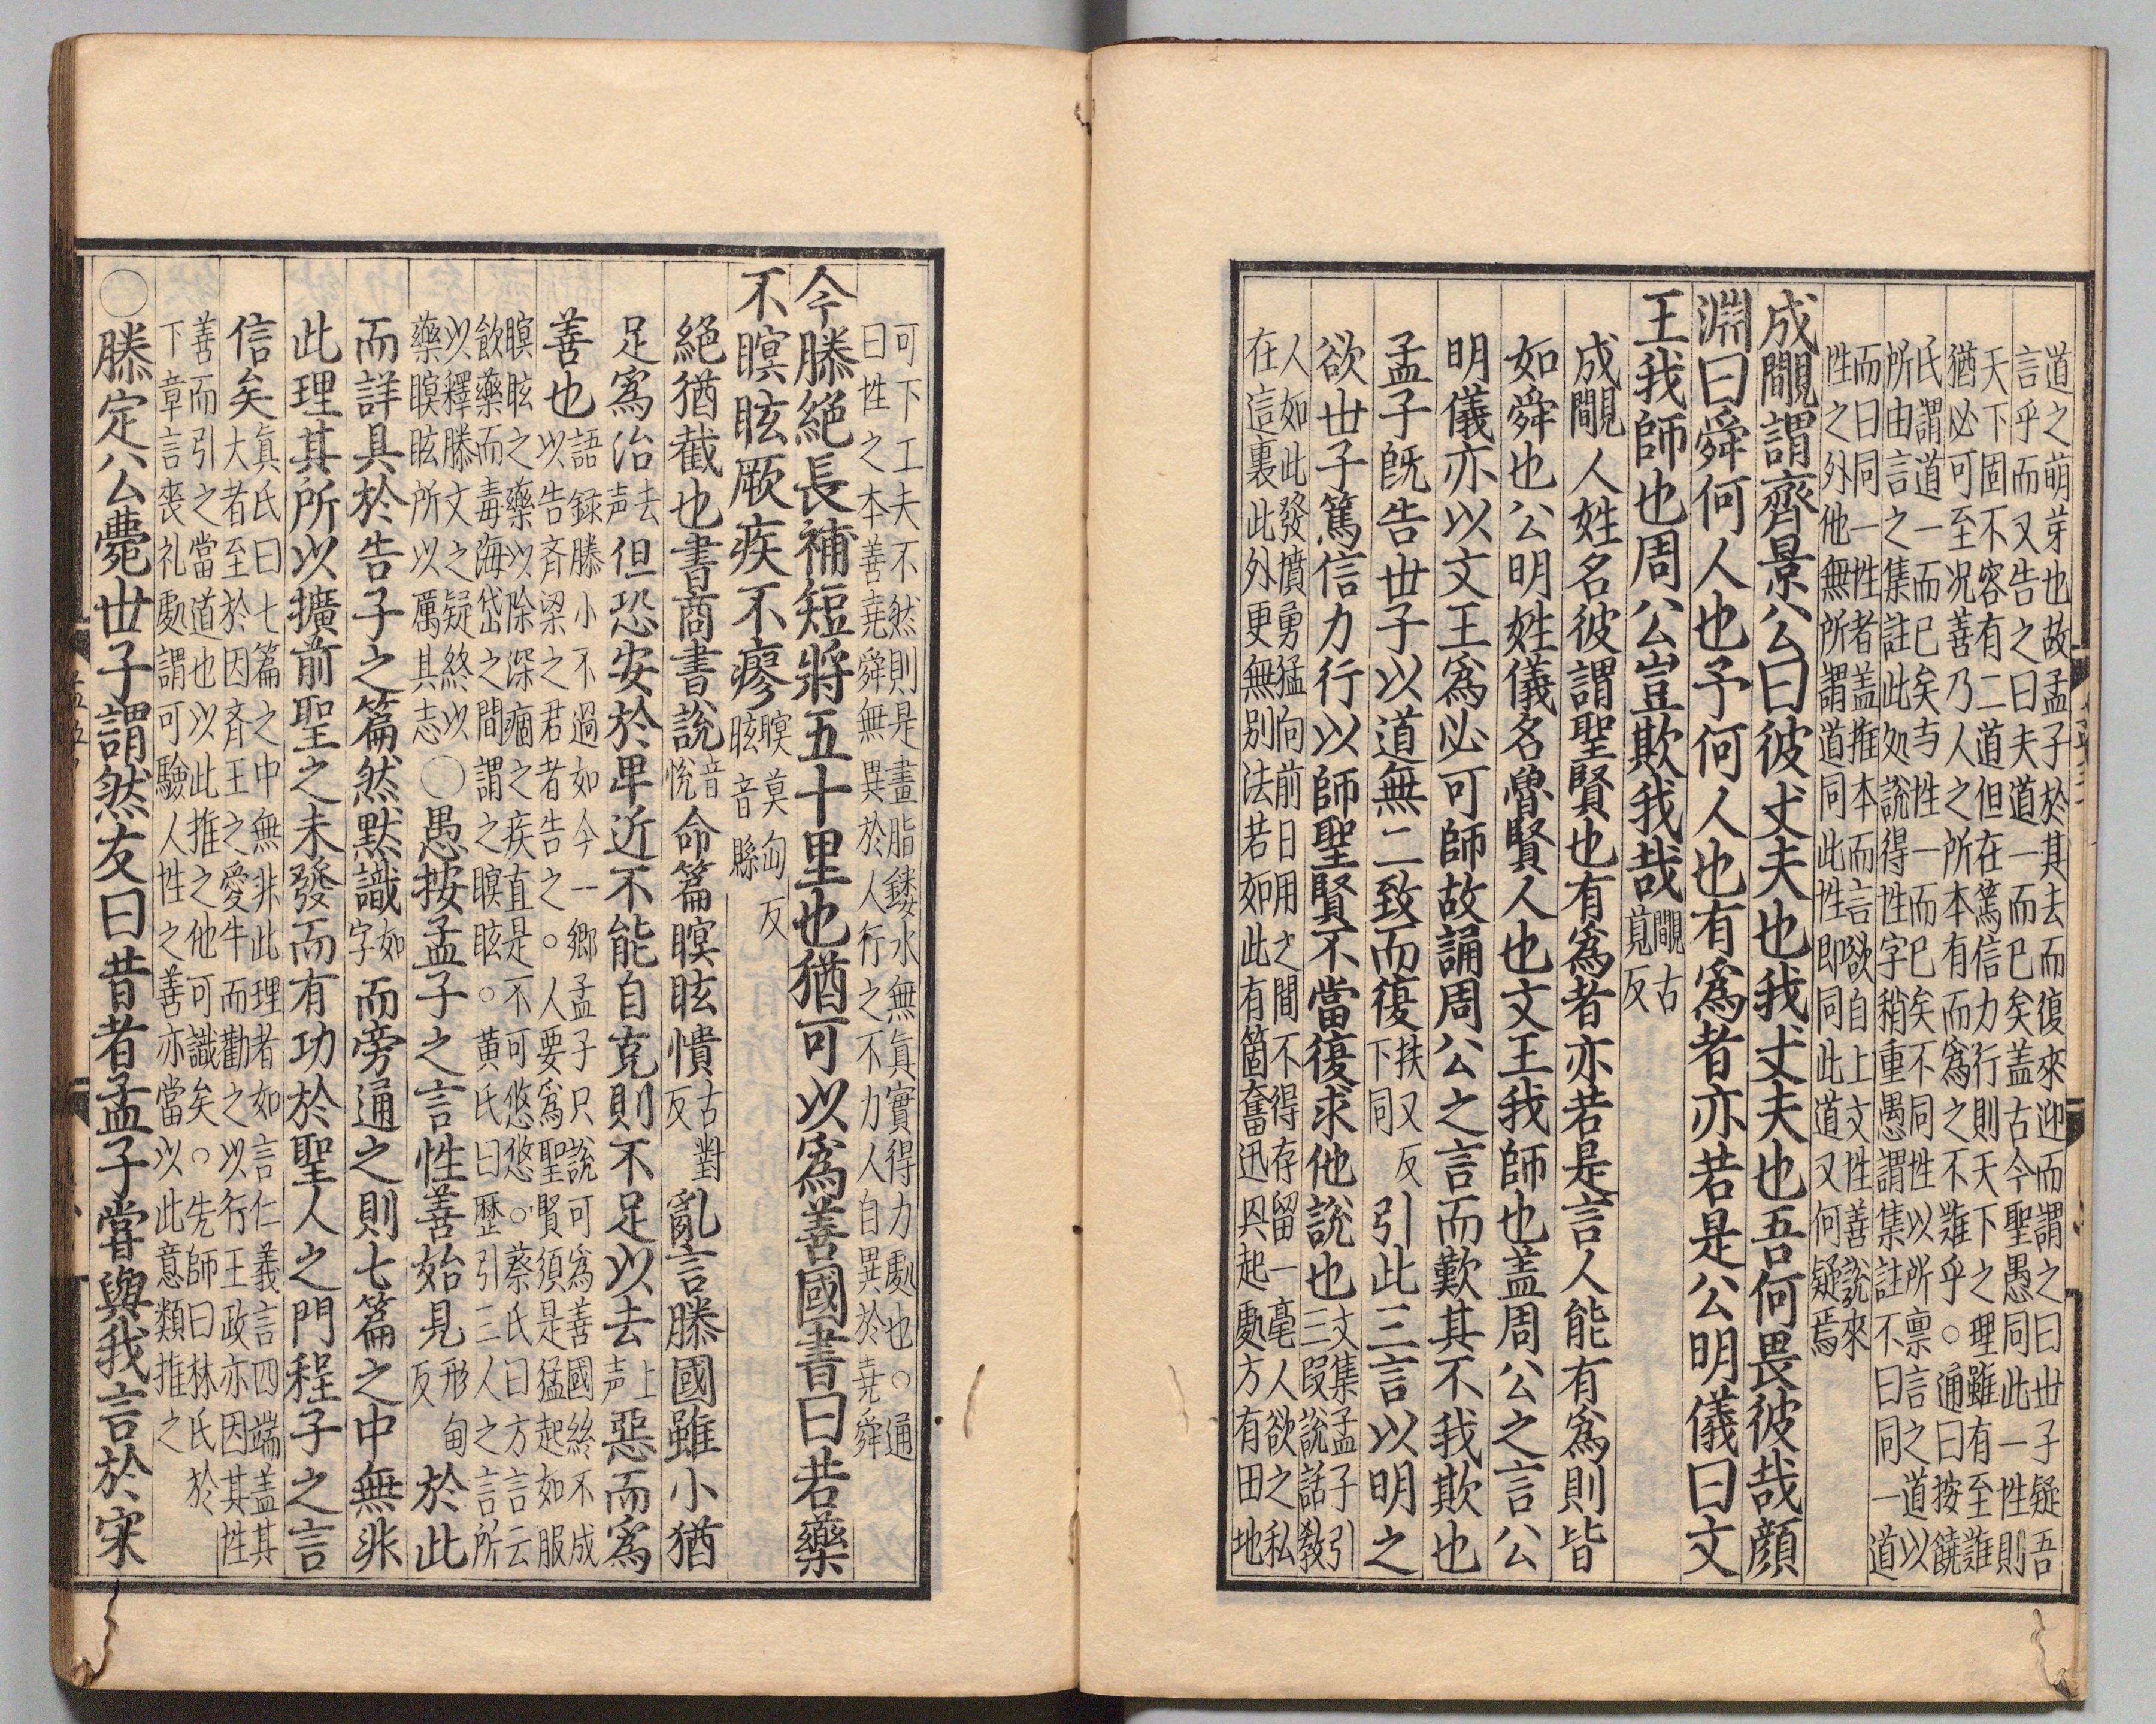 道之萌芽也故孟子於其去而復來迎而謂之曰世子疑吾
言乎而又告之曰夫道一而已矣盖古今聖愚同此一性則
天下固不容有二道但在篤信力行則天下之理雖有至難
猶必可至况善乃人之所本有而為之不難乎○通曰按饒
氏謂道一而已矣与性一而已矣不同性以所禀言之道以
所由言之集註此処說得性字稍重愚謂集註不曰同一道
而曰同一性者盖推本而言欲自上文性善說來
性之外他無所謂道同此性即同此道又何疑焉
成覸謂齊景公曰彼丈夫也我丈夫也吾何畏彼哉顔
淵曰舜何人也予何人也有爲者亦若是公明儀曰文
王我師也周公豈欺我哉覸古
莧反
成覸人姓名彼謂聖賢也有爲者亦若是言人能有爲則皆
如舜也公明姓儀名魯賢人也文王我師也盖周公之言公
明儀亦以文王爲必可師故誦周公之言而歎其不我欺也
孟子旣告世子以道無二致而復扶又反
下同引此三言以明之
欲世子篤信力行以師聖賢不當復求他說也文集孟子引
三叚說話敎
人如此發憤勇猛向前日用之間不得存留一毫人欲之私
在這裏此外更無别法若如此有箇奮迅興起䖏方有田地
可下工夫不然則是畫脂鏤水無真實得力䖏也○通
曰性之本善堯舜無異於人行之不力人自異於堯舜
今滕絕長補短將五十里也猶可以爲善國書曰若藥
不瞑眩厥疾不瘳瞑莫甸反
眩音縣
絕猶截也書商書說音
悅命篇瞑眩憒古對
反亂言滕國雖小猶
足爲治去
声但恐安於卑近不能自克則不足以去上
声惡而爲
善也語録滕小不過如今一鄉孟子只說可爲善國終不成
以告斉梁之君者告之○人要爲聖賢須是猛起如服
瞑眩之藥以除深痼之疾直是不可悠悠○蔡氏曰方言云
飲藥而毒海岱之間謂之瞑眩○黄氏曰歷引三人之言所
以釋滕文之疑終以
藥瞑眩所以厲其志○愚按孟子之言性善始見形甸
反於此
而詳具於告子之篇然黙識如
字而旁通之則七篇之中無非
此理其所以擴前聖之未發而有功於聖人之門程子之言
信矣真氏曰七篇之中無非此理者如言仁義言四端盖其
大者至於因斉王之愛牛而勸之以行王政亦因其性
善而引之當道也以此推之他可識矣○先師曰林氏於
下章言喪礼䖏謂可驗人性之善亦當以此意類推之
○滕定公薨世子謂然友曰昔者孟子嘗與我言於宋